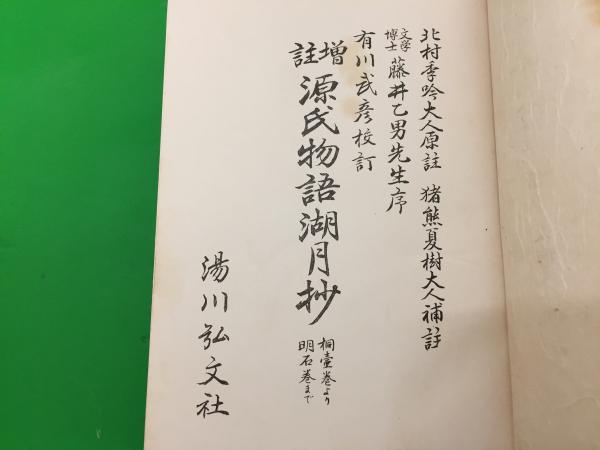 北村季吟大人原註 猪熊夏樹大人補註
文学博士 藤井乙男先生序
有川武彦校訂
増註 源氏物語湖月抄
桐壺巻より
明石巻まで
湯川弘文社